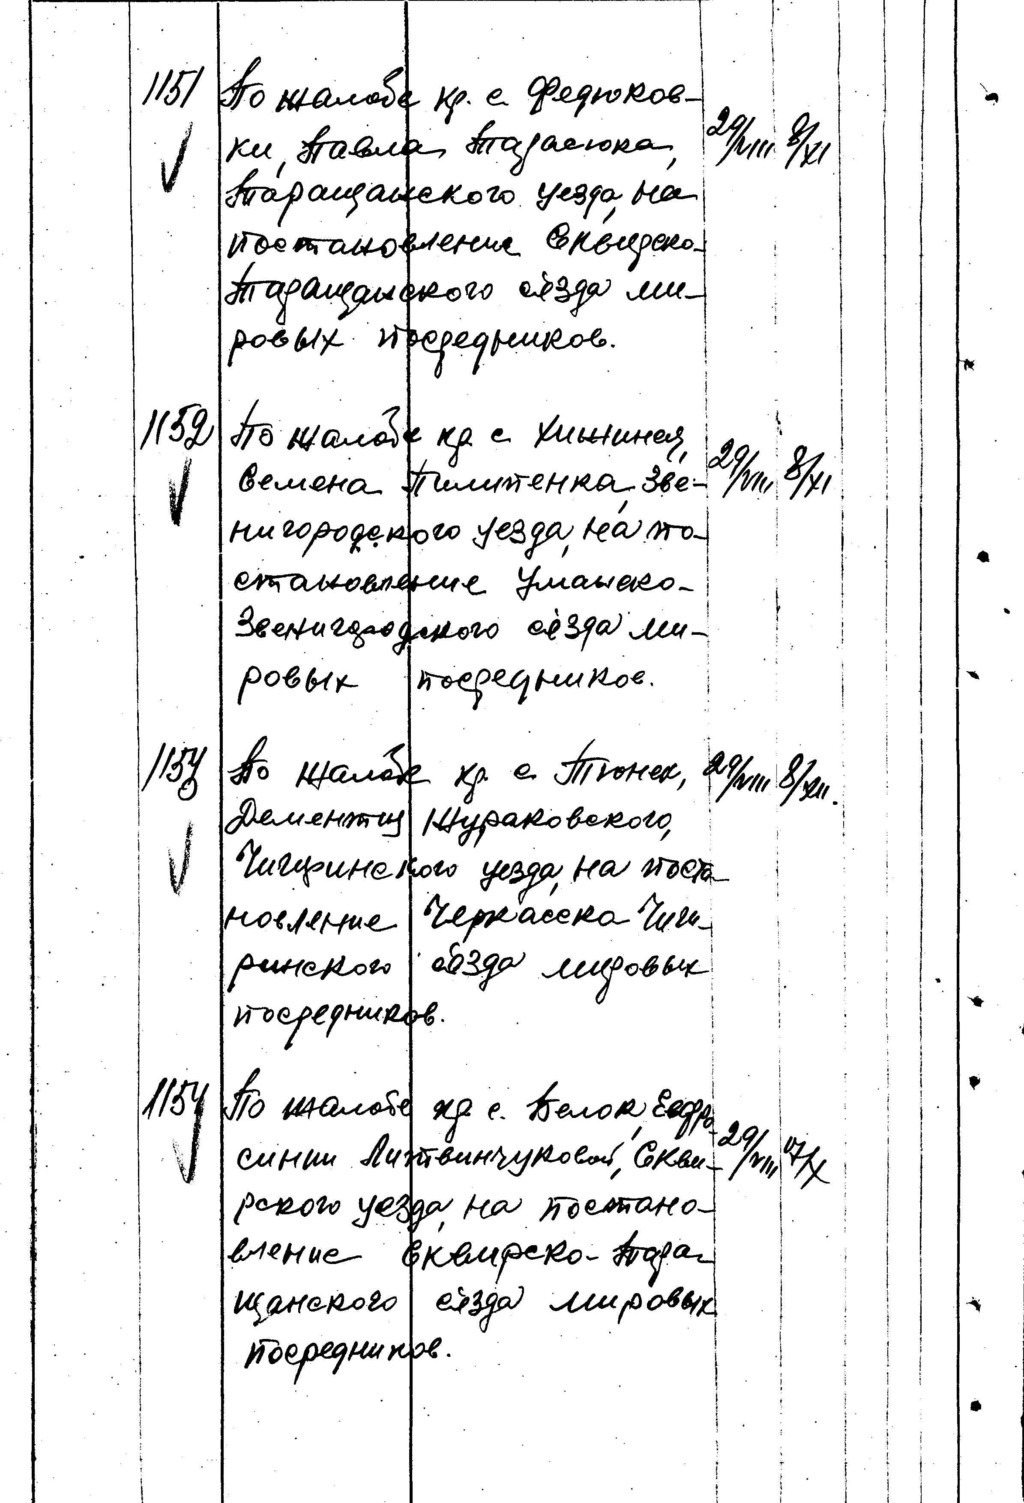 1151 По жалобе кр. с. Федюков-
ки, Павла Тарасюка, 29/VIII 8/XI
Таращанского уезда, на
постановление Сквирско-
Таращанского съезда ми-
ровых посредников.
1152 По жалобе кр. с. Хижинец,
Семена Пилипенка, Зве- 29/VIII 8/XI
нигородского уезда, на по-
становление Уманско-
Звенигородского съезда ми-
ровых посредников.
1153 По жалобе кр. с. Тионек, 29/VIII 8/XII.
Дементия Жураковского,
Чигиринского уезда, на поста-
новление Черкасска Чиги-
ринского съезда мировых
посредников.
1154 По жалобе кр. с. Белок, Евфро-
синии Литвинчуковой, Скви- 29/VIII 17/X
рского уезда, на постано-
вление Сквирско-Тара-
щанского съезда мировых
посредников.